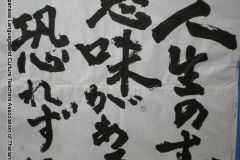 人生のす
意味がわ
恐れず
panese Language and Culture Teachers Association of Thailan